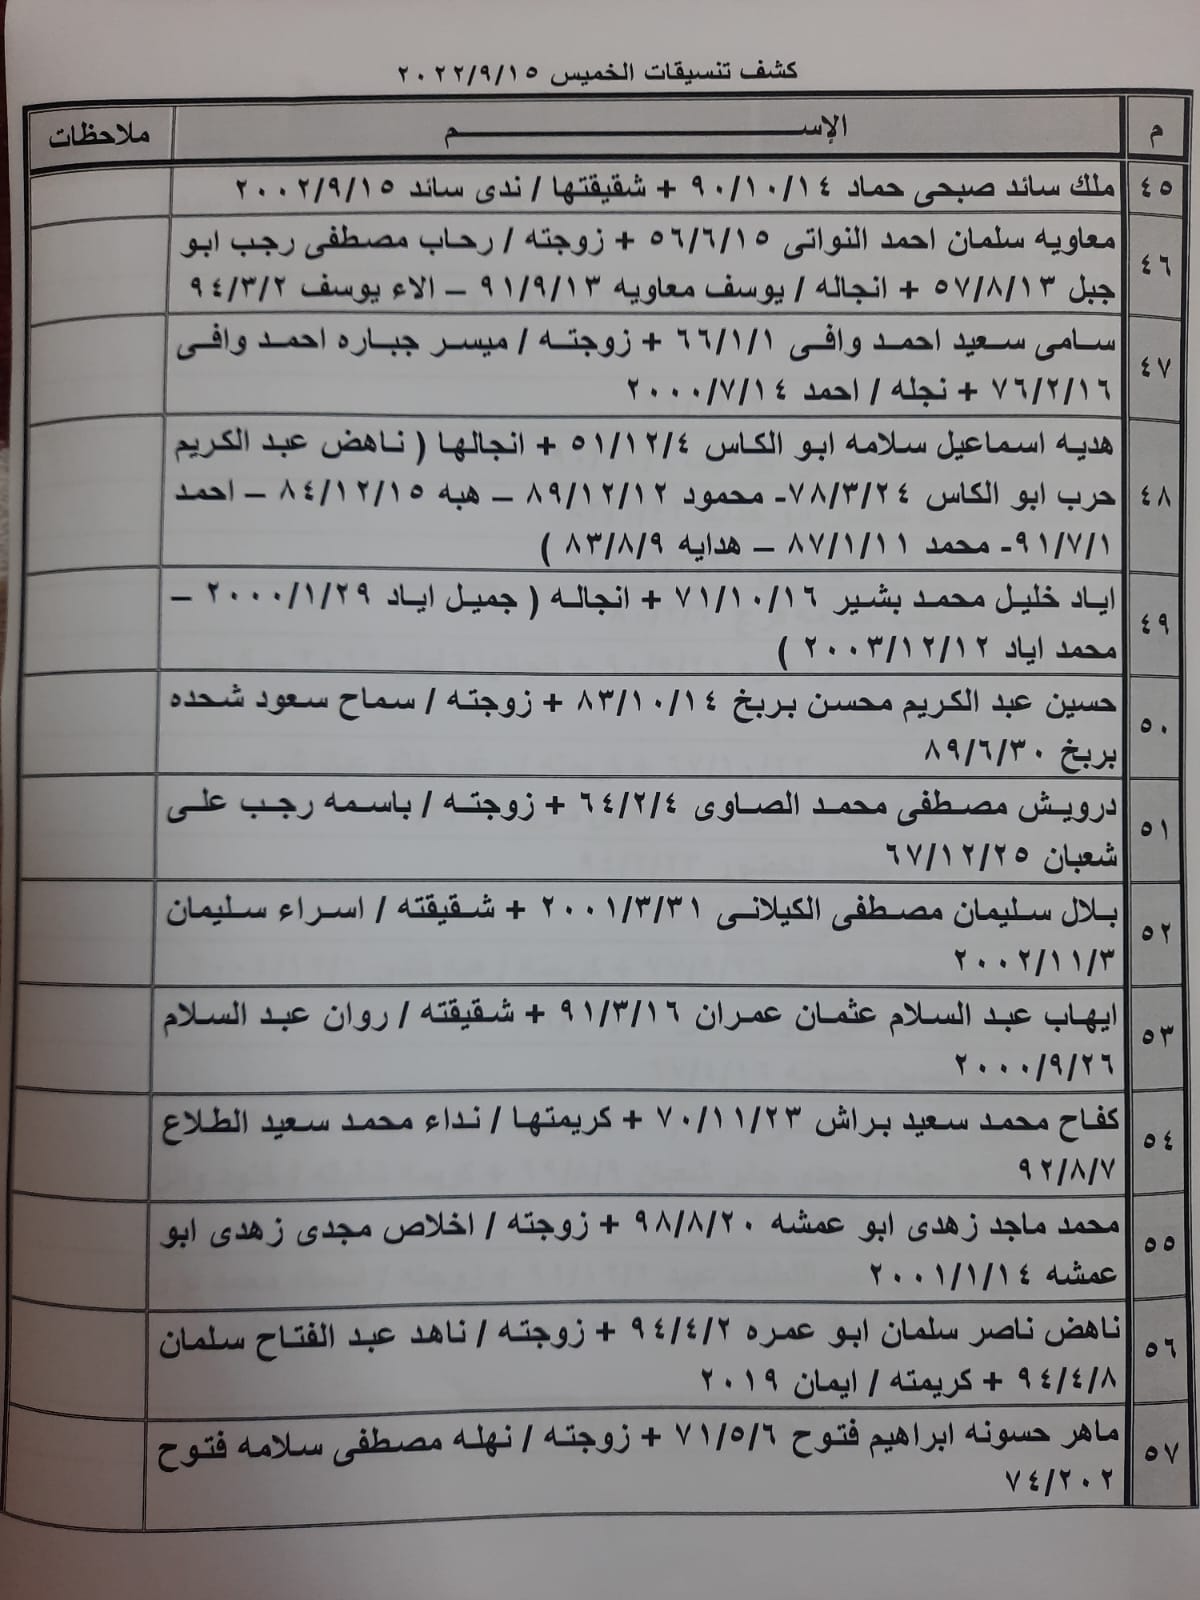 كشف تنسيقات الخميس ٢٠٢٢/٩/١٥
م الإســـــــــم ملاحظات
٤٥ ملك سائد صبحى حماد ٩٠/١٠/١٤ + شقيقتها / ندى سائد ٢٠٠٢/٩/١٥
٤٦ معاويه سلمان احمد النواتى ٥٦/٦/١٥ + زوجته / رحاب مصطفى رجب ابو
جبل ٥٧/٨/١٣ + انجاله / يوسف معاويه ٩١/٩/١٣ – الاء يوسف ٩٤/٣/٢
٤٧ سامى سعيد احمد وافى ٦٦/١/١ + زوجته / ميسر جباره احمد وافى
٧٦/٢/١٦ + نجله / احمد ٢٠٠٠/٧/١٤
٤٨ هديه اسماعيل سلامه ابو الكاس ٥١/١٢/٤ + انجالها ( ناهض عبد الكريم
حرب ابو الكاس ٧٨/٣/٢٤- محمود ٨٩/١٢/١٢ – هبه ٨٤/١٢/١٥ – احمد
٩١/٧/١- محمد ٨٧/١/١١ – هدايه ٨٣/٨/٩ )
٤٩ اياد خليل محمد بشير ٧١/١٠/١٦ + انجاله ( جميل اياد ٢٠٠٠/١/٢٩ –
محمد اياد ٢٠٠٣/١٢/١٢ )
٥٠ حسين عبد الكريم محسن بربخ ٨٣/١٠/١٤ + زوجته / سماح سعود شحده
بربخ ٨٩/٦/٣٠
٥١ درويش مصطفى محمد الصاوى ٦٤/٢/٤ + زوجته / باسمه رجب على
شعبان ٦٧/١٢/٢٥
٥٢ بلال سليمان مصطفى الكيلانى ٢٠٠١/٣/٣١ + شقيقته / اسراء سليمان
٢٠٠٢/١١/٣
٥٣ ايهاب عبد السلام عثمان عمران ٩١/٣/١٦ + شقيقته / روان عبد السلام
٢٠٠٠/٩/٢٦
٥٤ كفاح محمد سعيد براش ٧٠/١١/٢٣ + كريمتها / نداء محمد سعيد الطلاع
٩٢/٨/٧
٥٥ محمد ماجد زهدى ابو عمشه ٩٨/٨/٢٠ + زوجته / اخلاص مجدى زهدى ابو
عمشه ٢٠٠١/١/١٤
٥٦ ناهض ناصر سلمان ابو عمره ٩٤/٤/٢ + زوجته / ناهد عبد الفتاح سلمان
٩٤/٤/٨ + كريمته / ايمان ٢٠١٩
٥٧ ماهر حسونه ابراهيم فتوح ٧١/٥/٦ + زوجته / نهله مصطفى سلامه فتوح
٧٤/٢٠٢